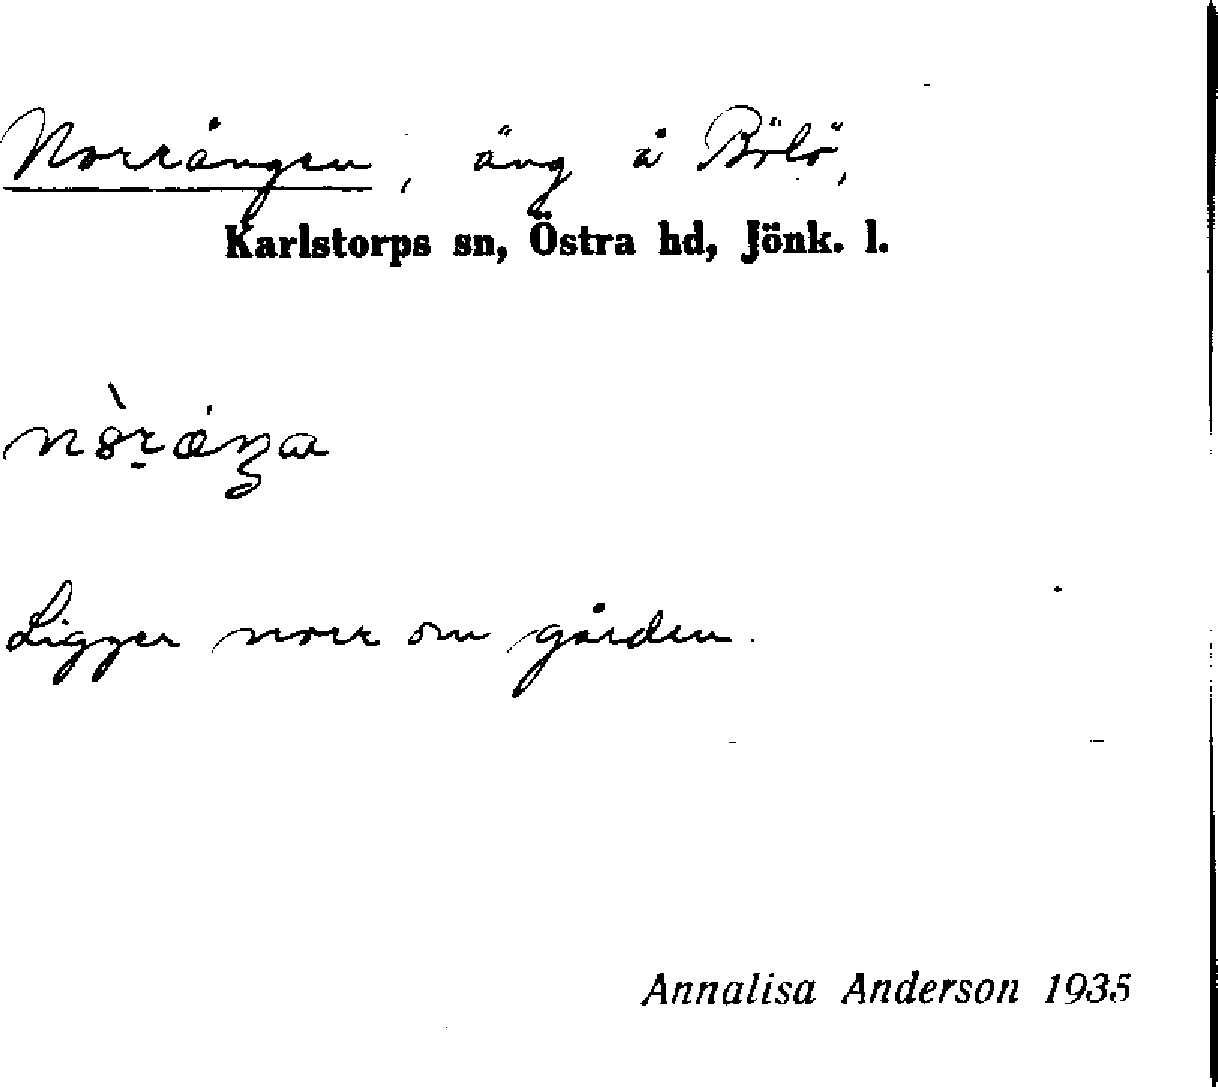 Norrängen, äng å Bölö,
Karlstorps sn, Östra hd, Jönk. l.
Ligger norr om gården.
Annalisa Anderson 1935